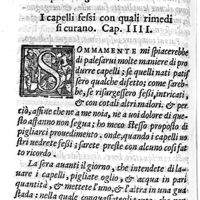 I capelli fessi con quali rimedi
si curano. Cap. IIII.
SOMMAMENTE mi spiacerebbe
di palesarui molte maniere di pro
durre capelli; se quelli nati patis
sero qualche difetto; come sareb-
be, se risurgessero fessi, intricati,
& con cotali altri malori. & per
ciò, affine che ne a me noia, ne a uoi dolore di que-
sto affanno non segua; ho meco stesso proposto di
pigliarci prouedimento. onde, quando i capelli uo
stri uedrete fessi; sarete preste con alcuno cosi fat
to ricordo.
La sera auanti il giorno, che intendete di la-
uare i capelli, pigliate oglio, & acqua in pari
quantità, & mettete l'uno, & l'altra in una gua
stada; nella quale